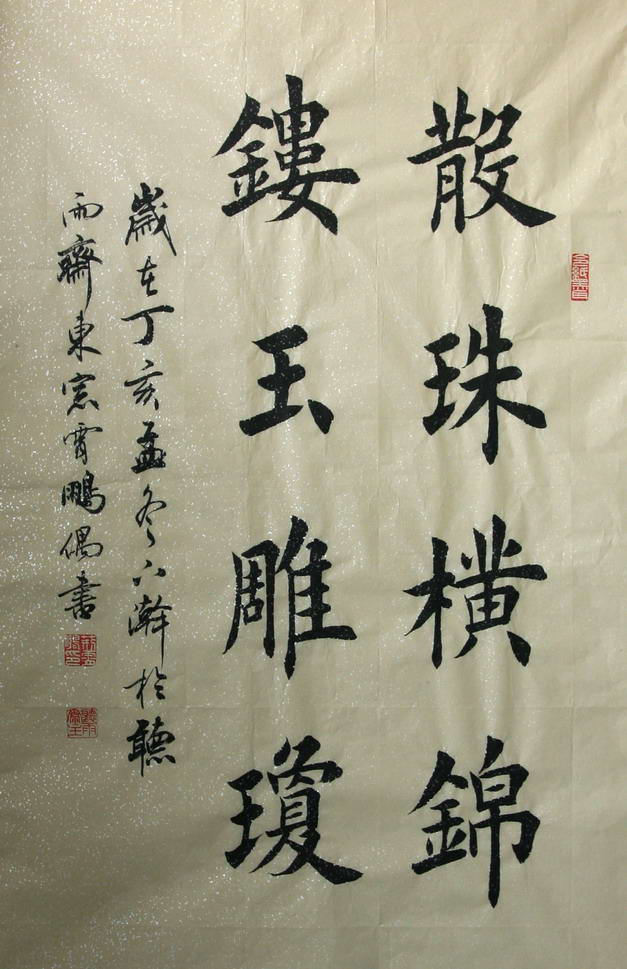 散珠橫錦
鏤玉雕瓊
歲在丁亥孟冬下澣於聽
雨齋東窓霄鵬偶書